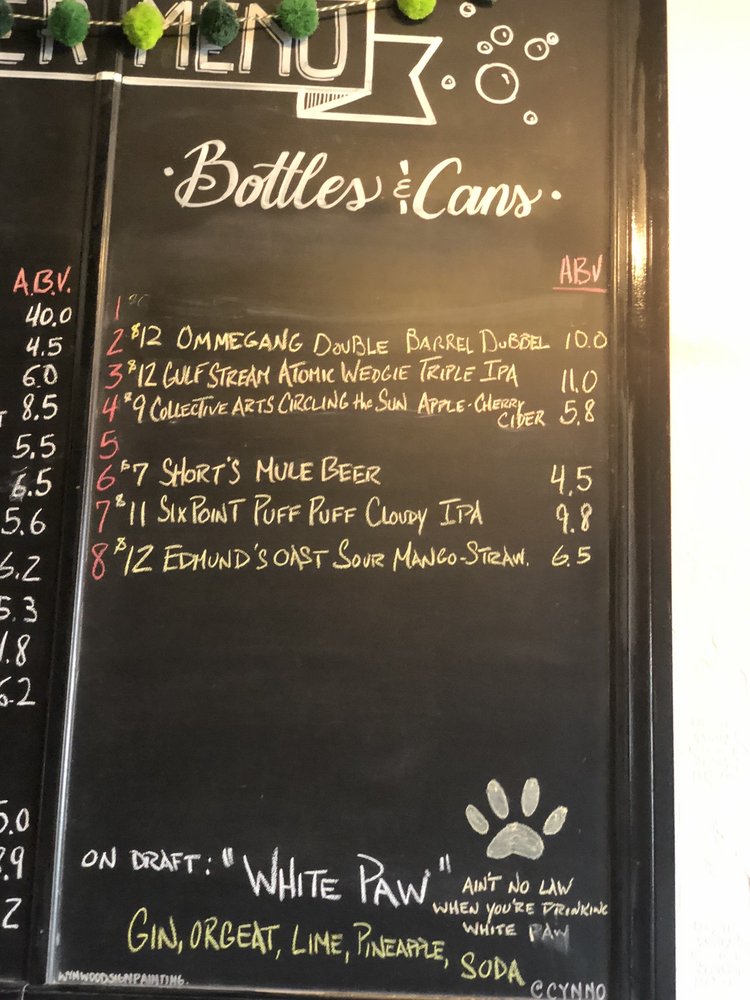 ER MENU
Bottles & Cans
A.B.V.
40.0
4.5
6.0
8.5
5.5
6.5
5.6
6.2
5.3
1.8
6.2
5.0
8.9
2
ABV
1
2 $12 OMMEGANG DOUBLE BARREL DUBBEL 10.0
3 $12 GULF STREAM ATOMIC WEDGIE TRIPLE IPA 11.0
4 $9 COLLECTIVE ARTS CIRCLING the SUN APPLE-CHERRY
CIDER 5.8
5
6 $7 SHORT'S MULE BEER 4.5
7 $11 SIXPOINT PUFF PUFF CLOUDY IPA 9.8
8 $12 EDMUND'S OAST SOUR MANGO-STRAW. 6.5
ON DRAFT: "WHITE PAW"
AIN'T NO LAW
WHEN YOU'RE DRINKING
WHITE PAW
GIN, ORGEAT, LIME, PINEAPPLE, SODA
WYNWOODSIGNPAINTING.
@CYNNO